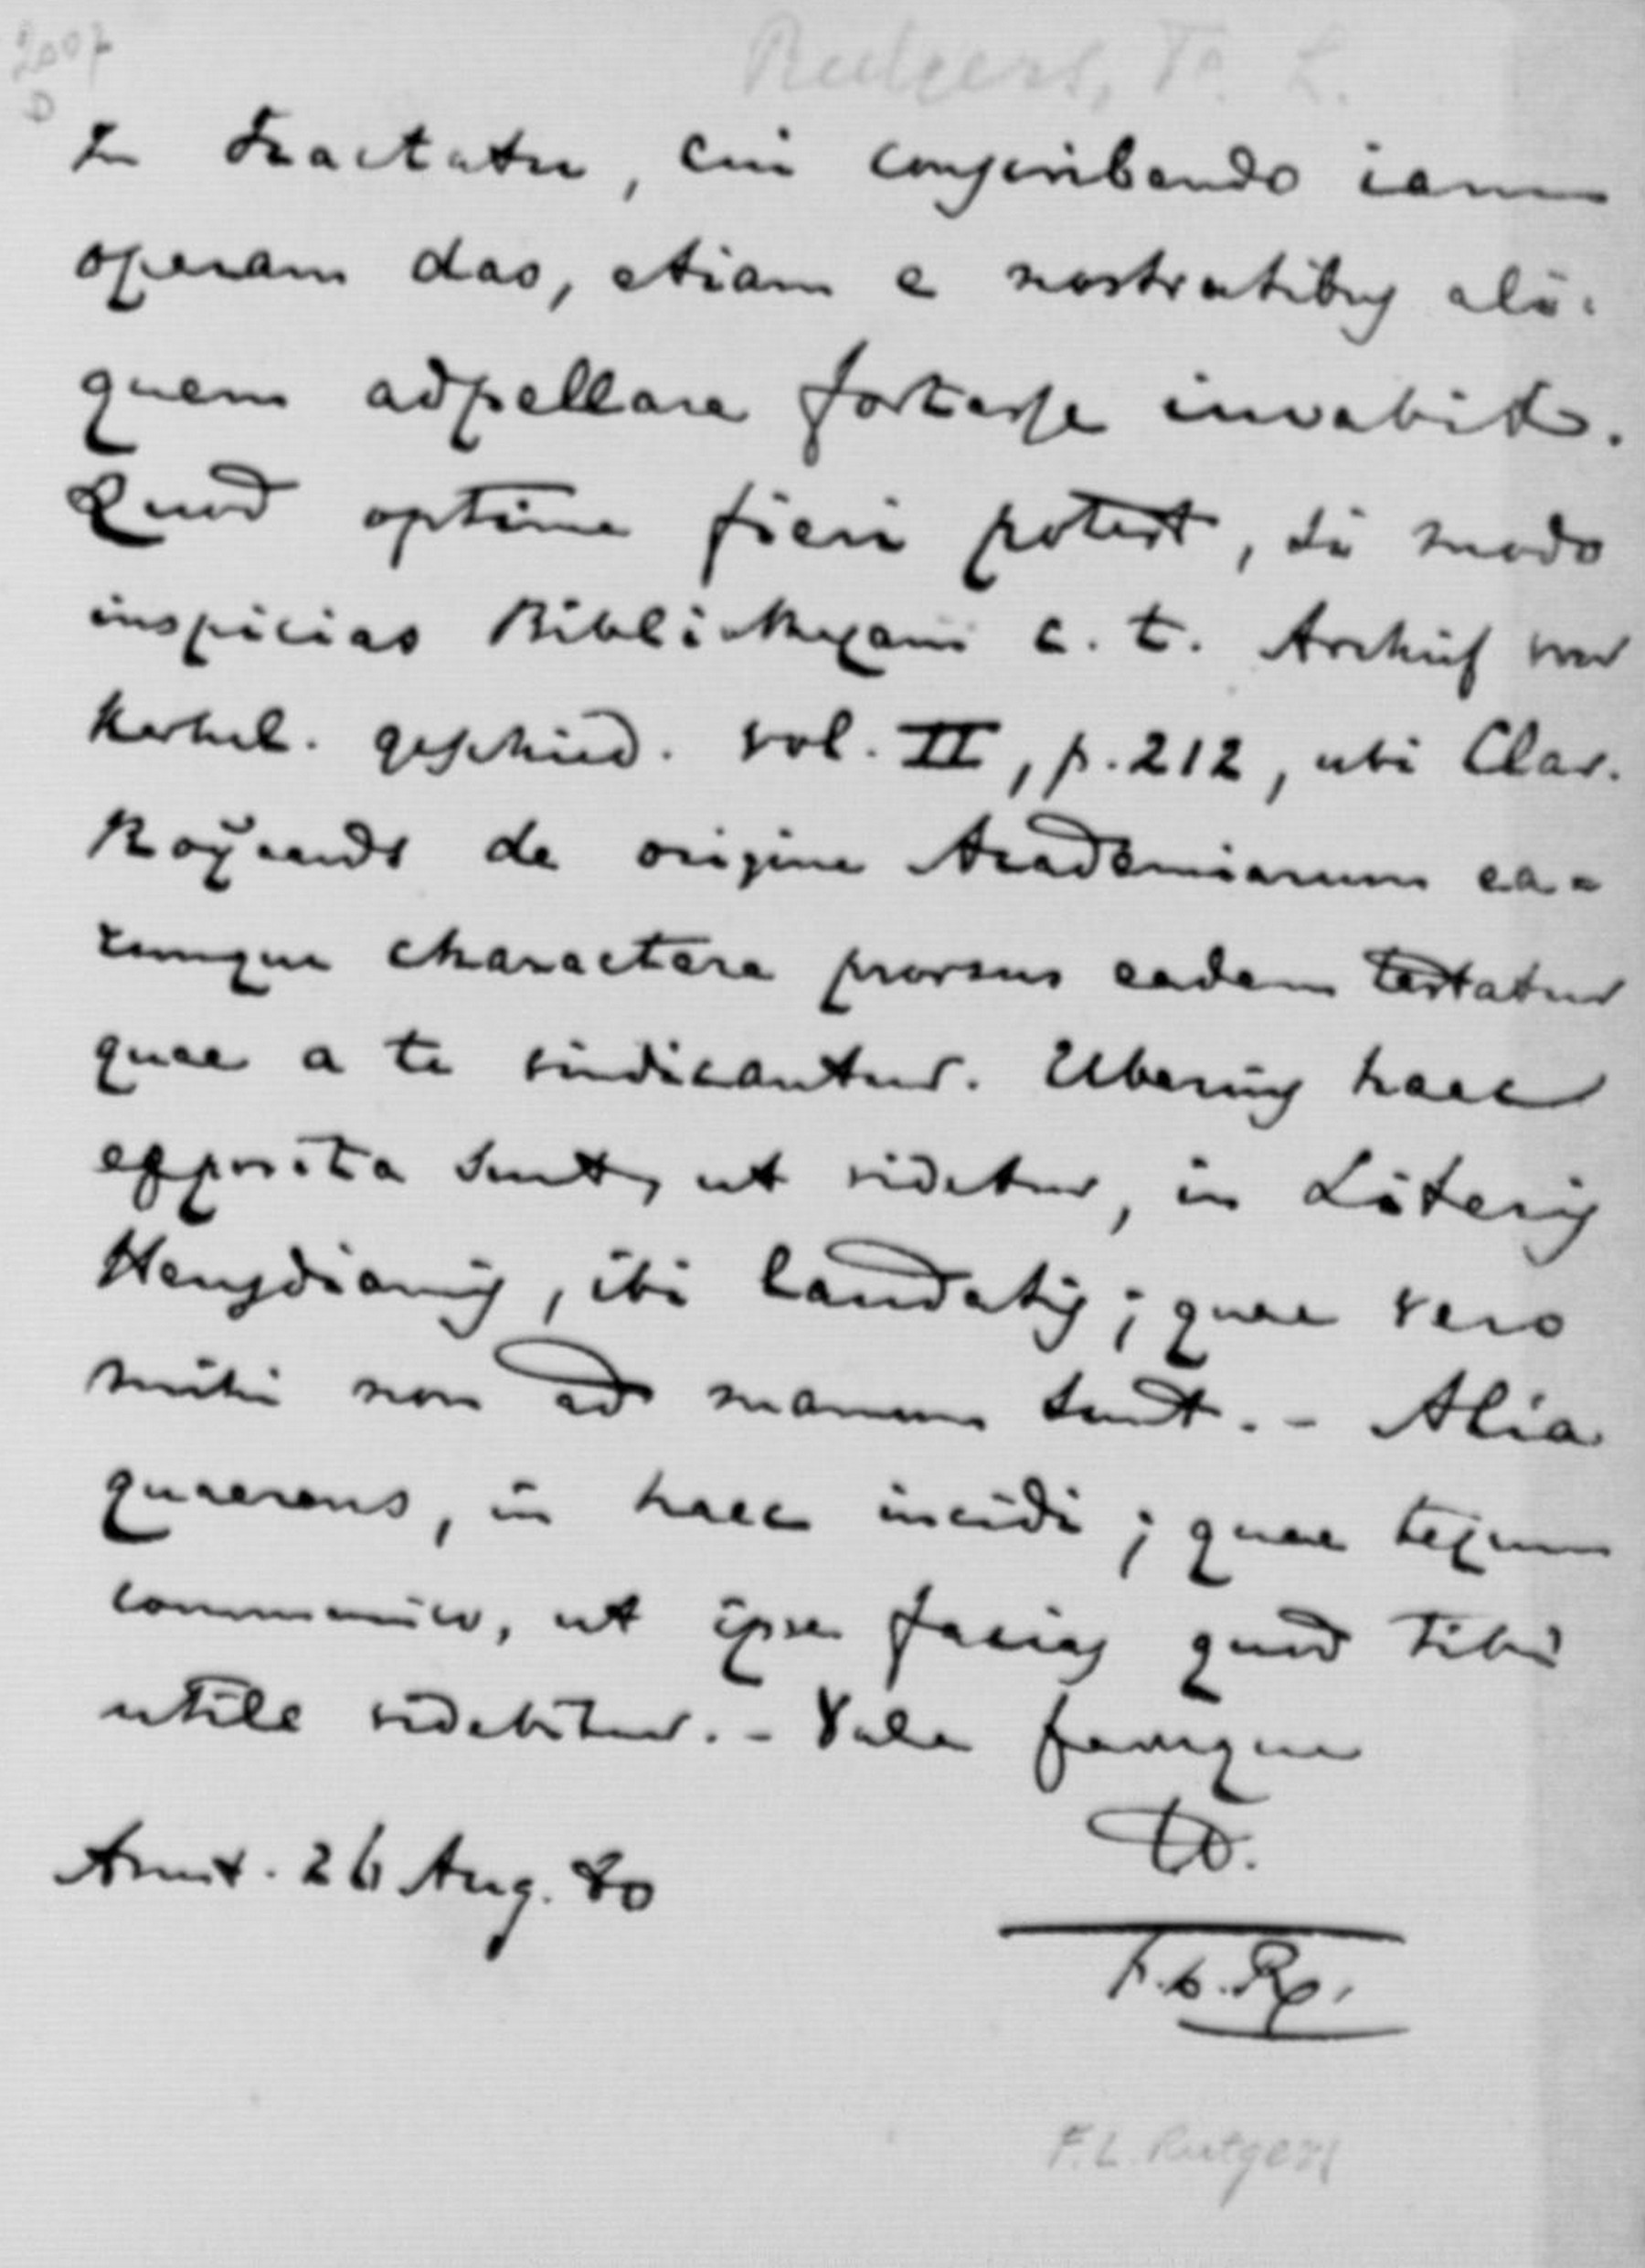 2007
D
Rutgers, Fr. L.
In Tractatu, cui conscribendo iam
operam das, etiam e nostratibus ali-
quem adpellare fortasse iuvabit.
Quod optime fieri potest, si modo
inspicias Bibliothecam c. t. Archief voor
Kerkel. geschied. vol. II, p. 212, ubi Clar.
Royaards de origine Academiarum ea-
rumque charactere prorsus eadem testatur
quae a te vindicantur. Uberius haec
exposita sunt, ut videtur, in Literis
ibi laudatis; quae vero
mihi non ad manum sunt. - Alia
quaerens, in haec incidi; quae tecum
communico, ut ipse facias quod tibi
utile videbitur. - Vale faveque
Amst. 26 Aug. 80
F. L. R.
F. L. Rutgers